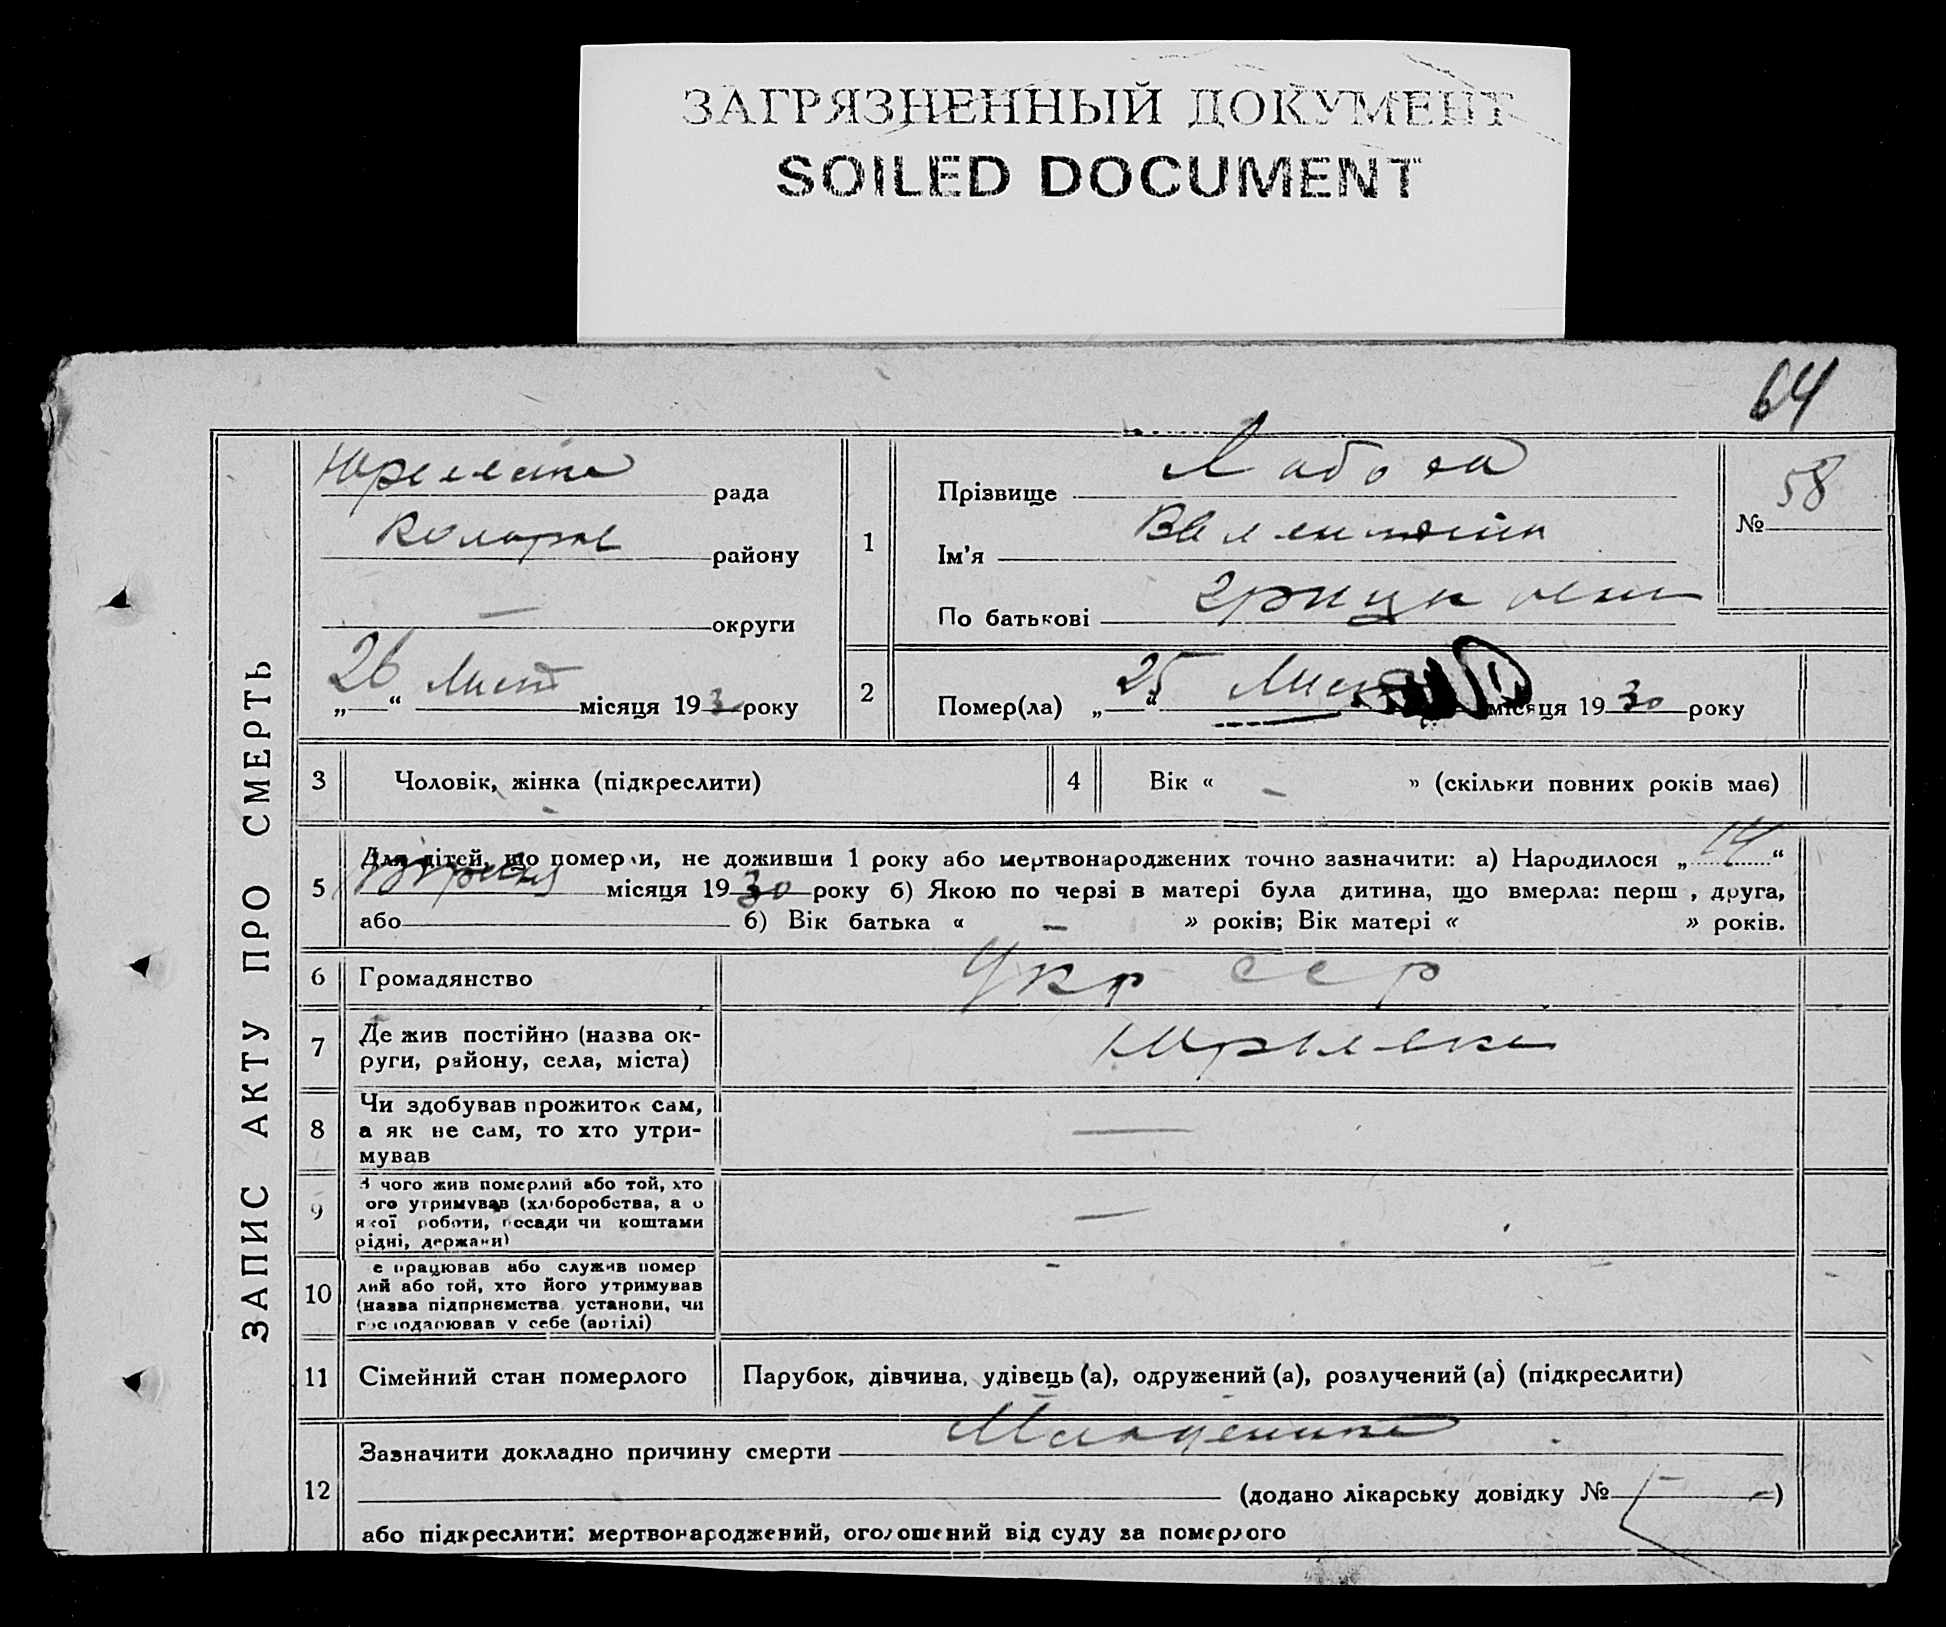 ЗАГРЯЗНЕННЫЙ ДОКУМЕНТ
SOILED DOCUMENT
64
ЗАПИС АКТУ ПРО СМЕРТЬ
рада
району
— округи
26 Лист місяця 193 року
1
Прізвище
Ім'я Валентина
По батькові
№ 58
2
Помер(ла) „25“ місяця 1930 року
3 Чоловік, жінка (підкреслити)
4 Вік « - » (скільки повних років має)
5 Для дітей, що померли, не доживши 1 року або мертвонароджених точно зазначити: а) Народилося „14“
Вересня місяця 1930 року б) Якою по черзі в матері була дитина, що вмерла: перш , друга,
або б) Вік батька « - » років; Вік матері « » років.
6 Громадянство Укр ССР
7 Де жив постійно (назва ок-
руги, району, села, міста)
8 Чи здобував прожиток сам,
а як не сам, то хто утри-
мував —
9 З чого жив померлий або той, хто
ого утримував (хліборобства, а о
якої роботи, посади чи коштами
рідні, держави) —
10 е працював або служив помер
лий або той, хто його утримував
(назва підприємства установи, чи
господарював у себе (артілі) -
11 Сімейний стан померлого Парубок, дівчина, удівець (а), одружений (а), розлучений (а) (підкреслити)
12 Зазначити докладно причину смерти
(додано лікарську довідку № )
або підкреслити: мертвонароджений, оголошений від суду за померлого